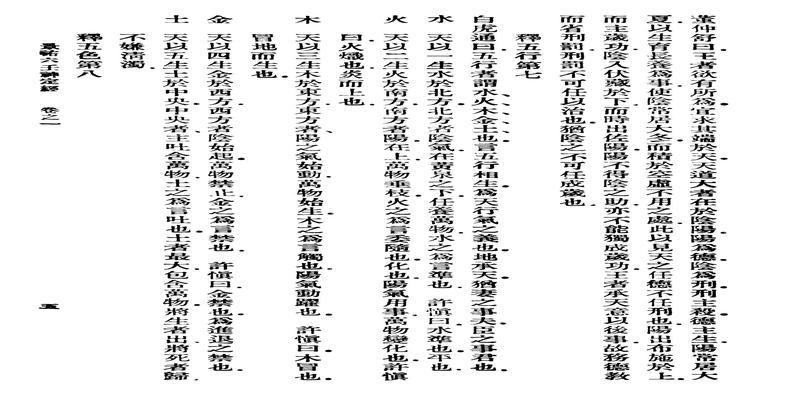 董仲舒曰王者欲有所為宜求其端於天天道大者在於陰陽陽為德陰為刑刑主殺德主生陽常居大
夏以生育長養為事使陰常居大冬而積於空虛不用之處此以見天之任德不任刑也陽出布施於上
而主歲功陰入伏藏於下而時出佐陽陽不得陰之助亦不能獨成歲功王者承天意以從事故務德教
而省刑罰刑罰不可任以治也猶陰之不可任成歲也
釋五行第七
白虎通曰五行者謂水火木金土也言五行相生為天行氣之義也地承天猶妻之事夫臣之事君也
水 天以一生水於北方北方者陰氣在黃泉之下任養萬物水之為言準也 許慎曰水準也平也
火 天以二生火於南方南方者陽在上萬物垂枝火之為言委隨也化也陽氣用事萬物變化也許慎
曰火熾也炎而上也
木 天以三生木於東方東方者陽之氣始動萬物始生木之為言觸也陽氣動躍也 許慎曰木冒也
冒地而生也
金 天以四生金於西方西方者陰始起萬物禁止金之為言禁也 許慎曰金禁也為進退之禁也
土 天以五生土於中央中央者主吐含萬物土之為言吐也土者最大包含萬物將生者出將死者歸
不嫌清濁
釋五色第八
景祐六壬神定經 卷之一 五